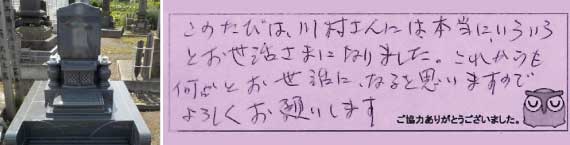 このたびは、川村さんには本当に、いろいろ
とお世話さまになりました。これからも
何かとお世話に、なると思いますので
よろしくお願いします
ご協力ありがとうございました。